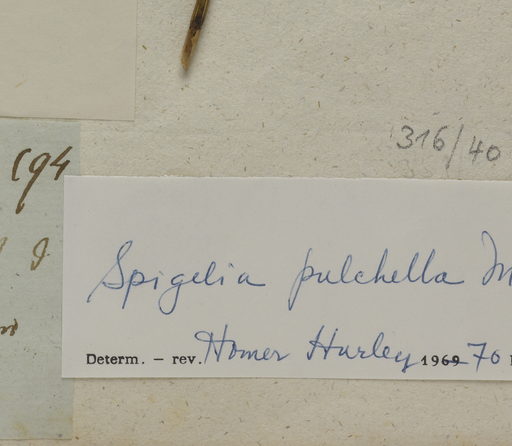 316/40
194
Spigelia pulchella M
Determ. – rev. Homer Hurley 1969 70